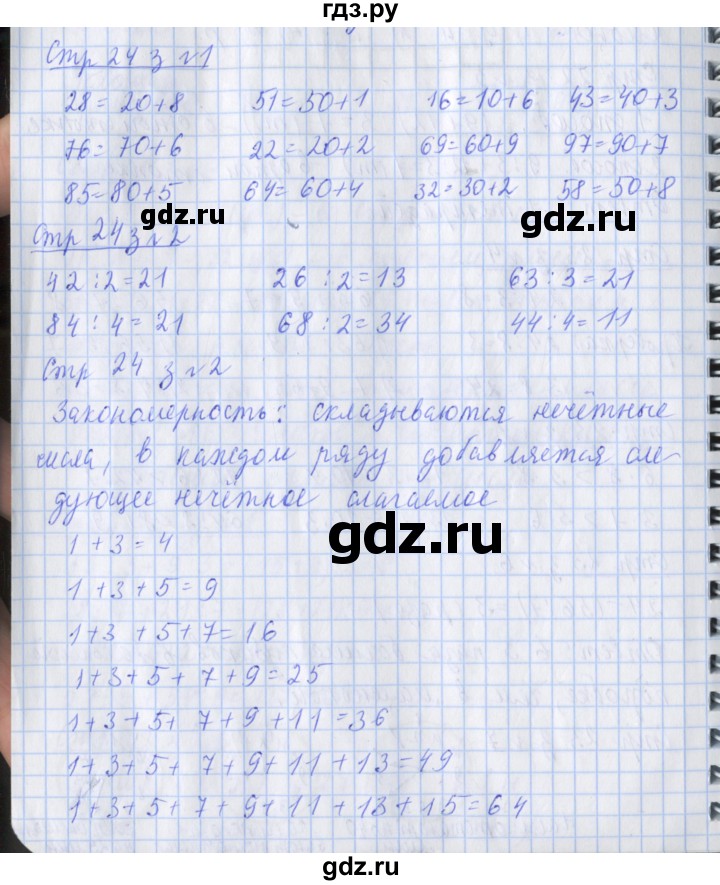 гдз.ру
Стр 24 з №1
28=20+8 51=50+1 16=10+6 43=40+3
76=70+6 22=20+2 69=60+9 97=90+7
85=80+5 64=60+4 32=30+2 58=50+8
gdz.ru gdz.ru
Стр 24 з №2
42:2=21 26:2=13 63:3=21
84:4=21 68:2=34 44:4=11
Стр 24 з №2
Закономерность: складываются нечётные
числа, в каждом ряду добавляется сле-
дующее нечётное слагаемое
gdz.ru
1+3=4
1+3+5=9
1+3+5+7=16
1+3+5+7+9=25
1+3+5+7+9+11=36
1+3+5+7+9+11+13=49
1+3+5+7+9+11+13+15=64
gdz.ru